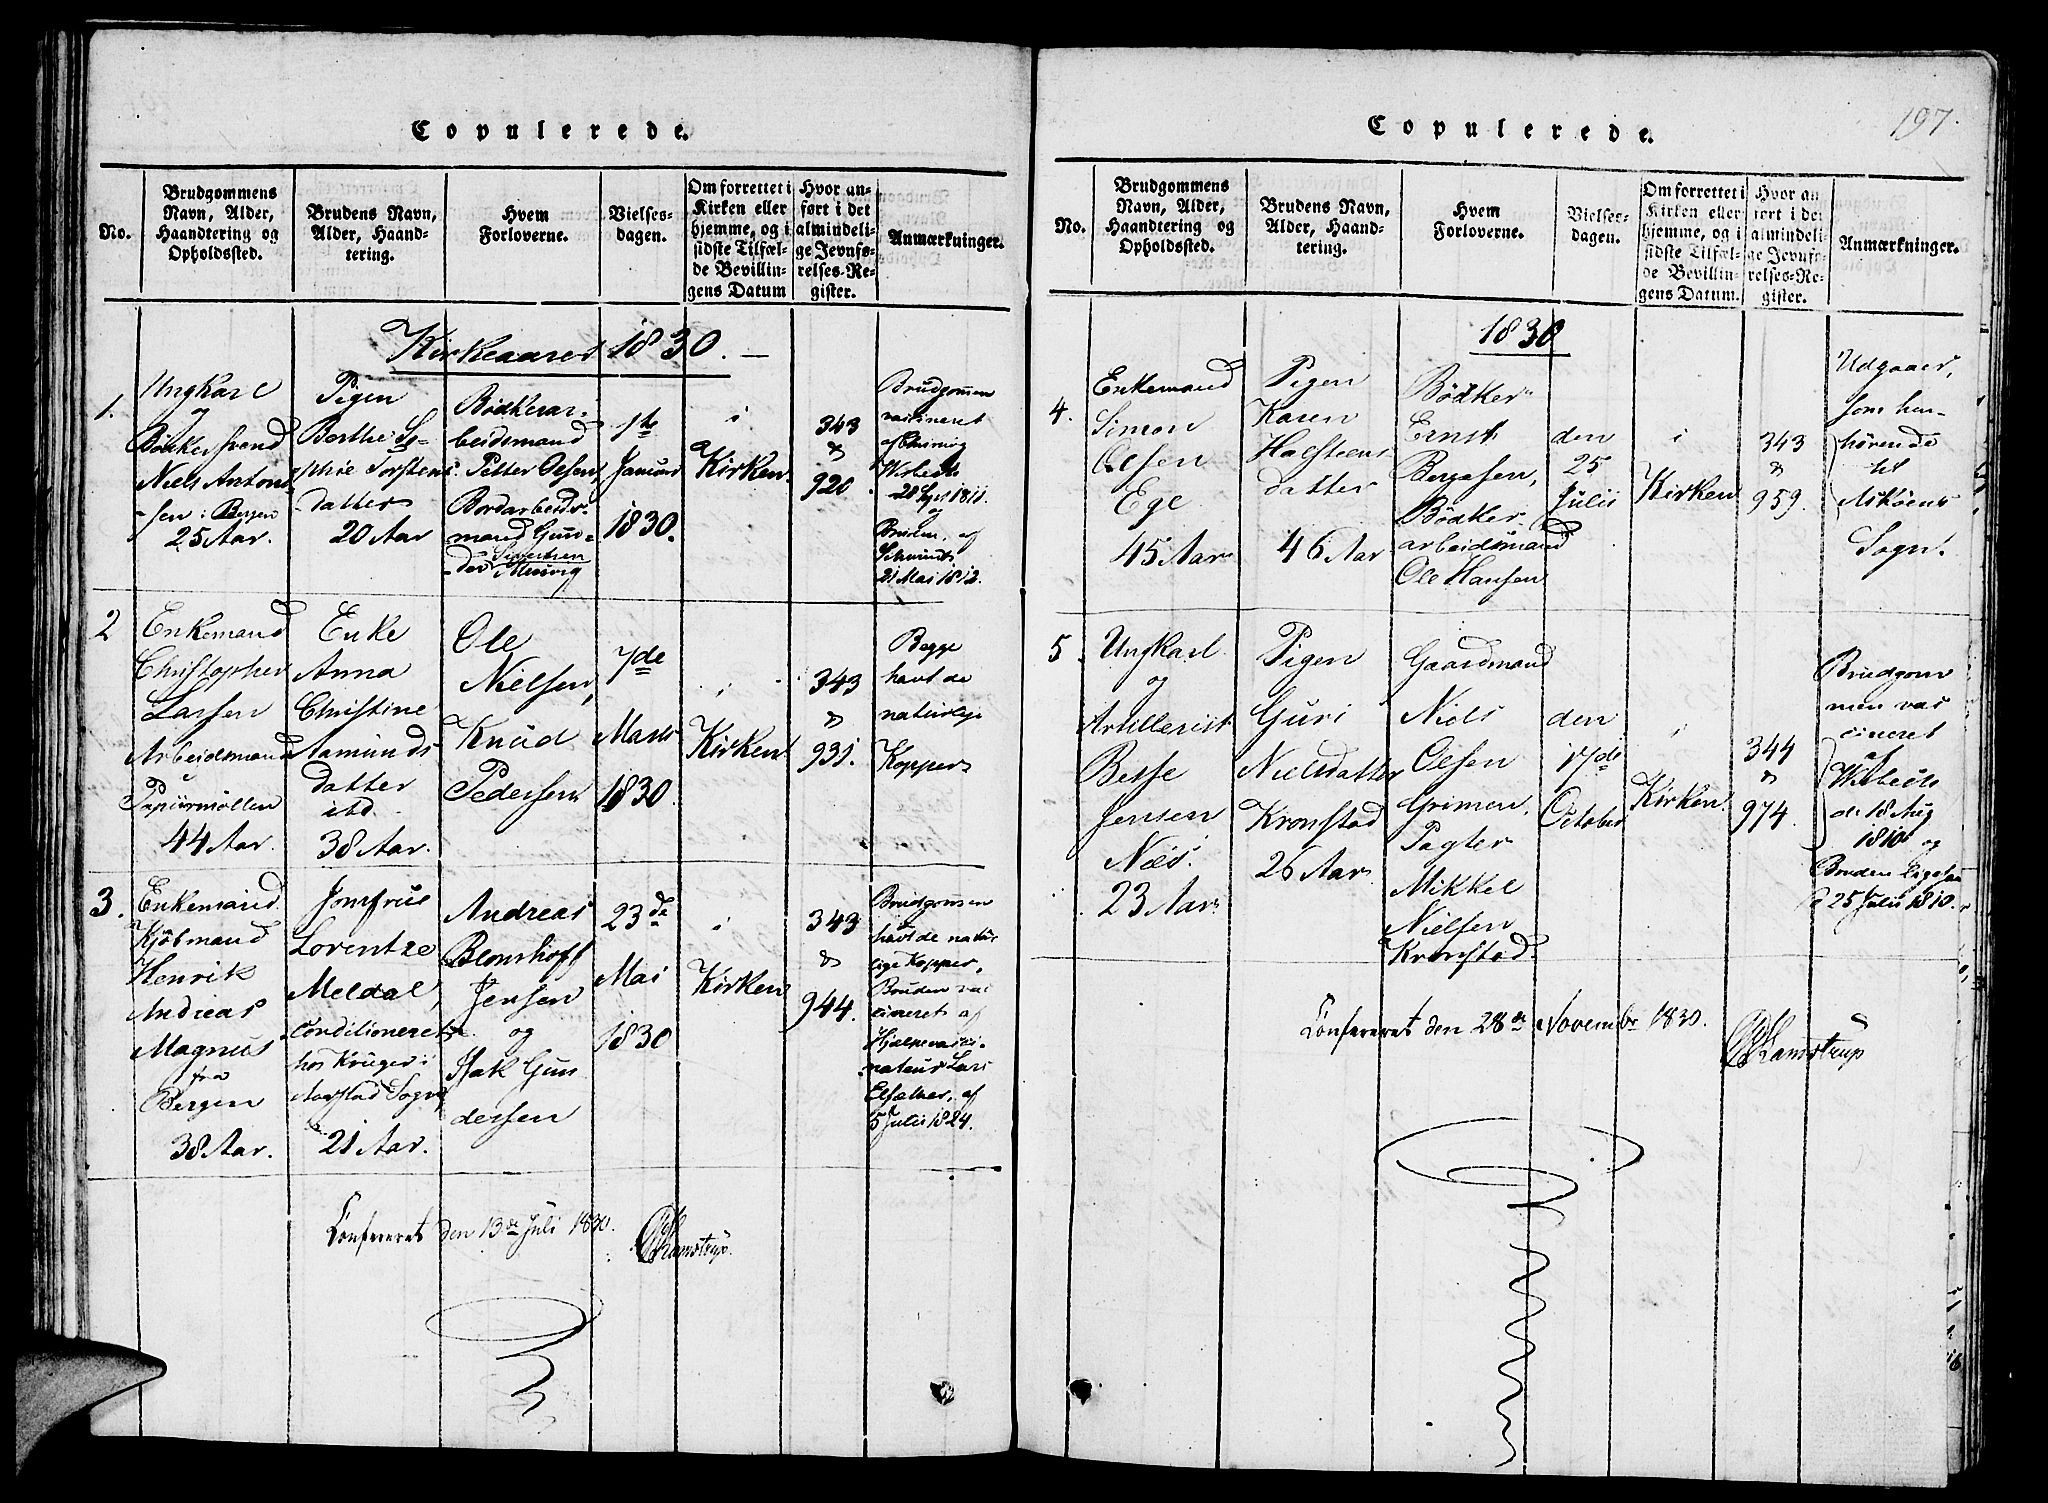 Copulerede.
No.
Brudgommens
Navn, Alder,
Haandtering og
Opholdssted.
Brudens Navn,
Alder, Haand-
tering.
Hvem
Forloverne.
Vielses-
dagen.
Om forrettet i
Kirken eller
hjemme, og i
sidste Tilfæl-
de Bevillin-
gens Datum
Hvor an-
ført i det
almindeli-
ge Jevnfø-
relses-Re-
gister.
Anmærkninger.
Kirkeaaret 1830. —
1.
Ungkarl
Bødkersvend
Niels Anton
sen i Bergen
25 Aar.
Pigen
Berthe
Torstens
datter
20 Aar
Bødkerar-
beidsmand
Petter Olsen,
Bordarbeids-
mand Gun-
der Sivertsen
1ste
Januar
1830.
i
Kirken
343
&
920
Brudgommen
vaccineret
af
Wisbech
21 Sept 1811.
og
Bruden af
Schmidt
21 Mai 1812.
2
Enkemand
Christopher
Larsen
Arbeidsmand
Papiirmøllen
44 Aar.
Enke
Anna
Christine
Aamunds
datter
ibd.
38 Aar.
Ole
Nielsen,
Knud
Pedersen
7de
Marts
1830.
i
Kirken
343
&
931.
Begge
havt de
naturlige
Kopper
3.
Enkemand
Kjøbmand
Henrik
Andreas
Magnus
fra
Bergen
38 Aar.
Jomfrue
Lorentze
Meldal,
conditioneret
hos Krüger i
Aarstad Sogn
21 Aar.
Andreas
Blomhoff
Jensen
og
Isak Gun
dersen
23de
Mai
1830
i
Kirken
343
&
944.
Brudgommen
havt de natur
lige Kopper,
Bruden vac
cineret af
Hjelpevacci-
nateur Lars
af
5 Julii 1824.
Confereret den 13de Juli 1830.
Ramstrup.
197.
Copulerede.
No.
Brudgommens
Navn, Alder,
Haandtering og
Opholdssted.
Brudens Navn,
Alder, Haand-
tering.
Hvem
Forloverne.
Vielses-
dagen.
Om forrettet i
Kirken eller
hjemme, og i
sidste Tilfæl-
de Bevillin-
gens Datum.
Hvor an
ført i det
almindeli-
ge Jevnfø-
relses-Re-
gister.
Anmærkninger.
1830
4.
Enkemand
Simon
Olsen
Ege
45 Aar
Pigen
Karen
Halsteens
datter
46 Aar
Bødker
Ernst
Bergesen,
Bødker-
arbeidsmand
Ole Hansen
den
25
Julii
i
Kirken
343
&
959.
Udgaaer,
som hen-
hørende
til
Askøens
Sogn.
5.
Ungkarl
og
Artillerist
Besse
Jensen
Næs.
23 Aar
Pigen
Guri
Nielsdatter
Kronstad
26 Aar
Gaardmand
Niels
Olsen
Grimen,
Pagter
Mikkel
Nielsen
Kronstad
den
17de
October
i
Kirken
344
&
974.
Brudgom
men vac
cineret
af
Wisbech
de 18 Aug
1810 og
Bruden ligesaa
25 Julii 1810.
Confereret den 28de Novembr 1830.
Ramstrup